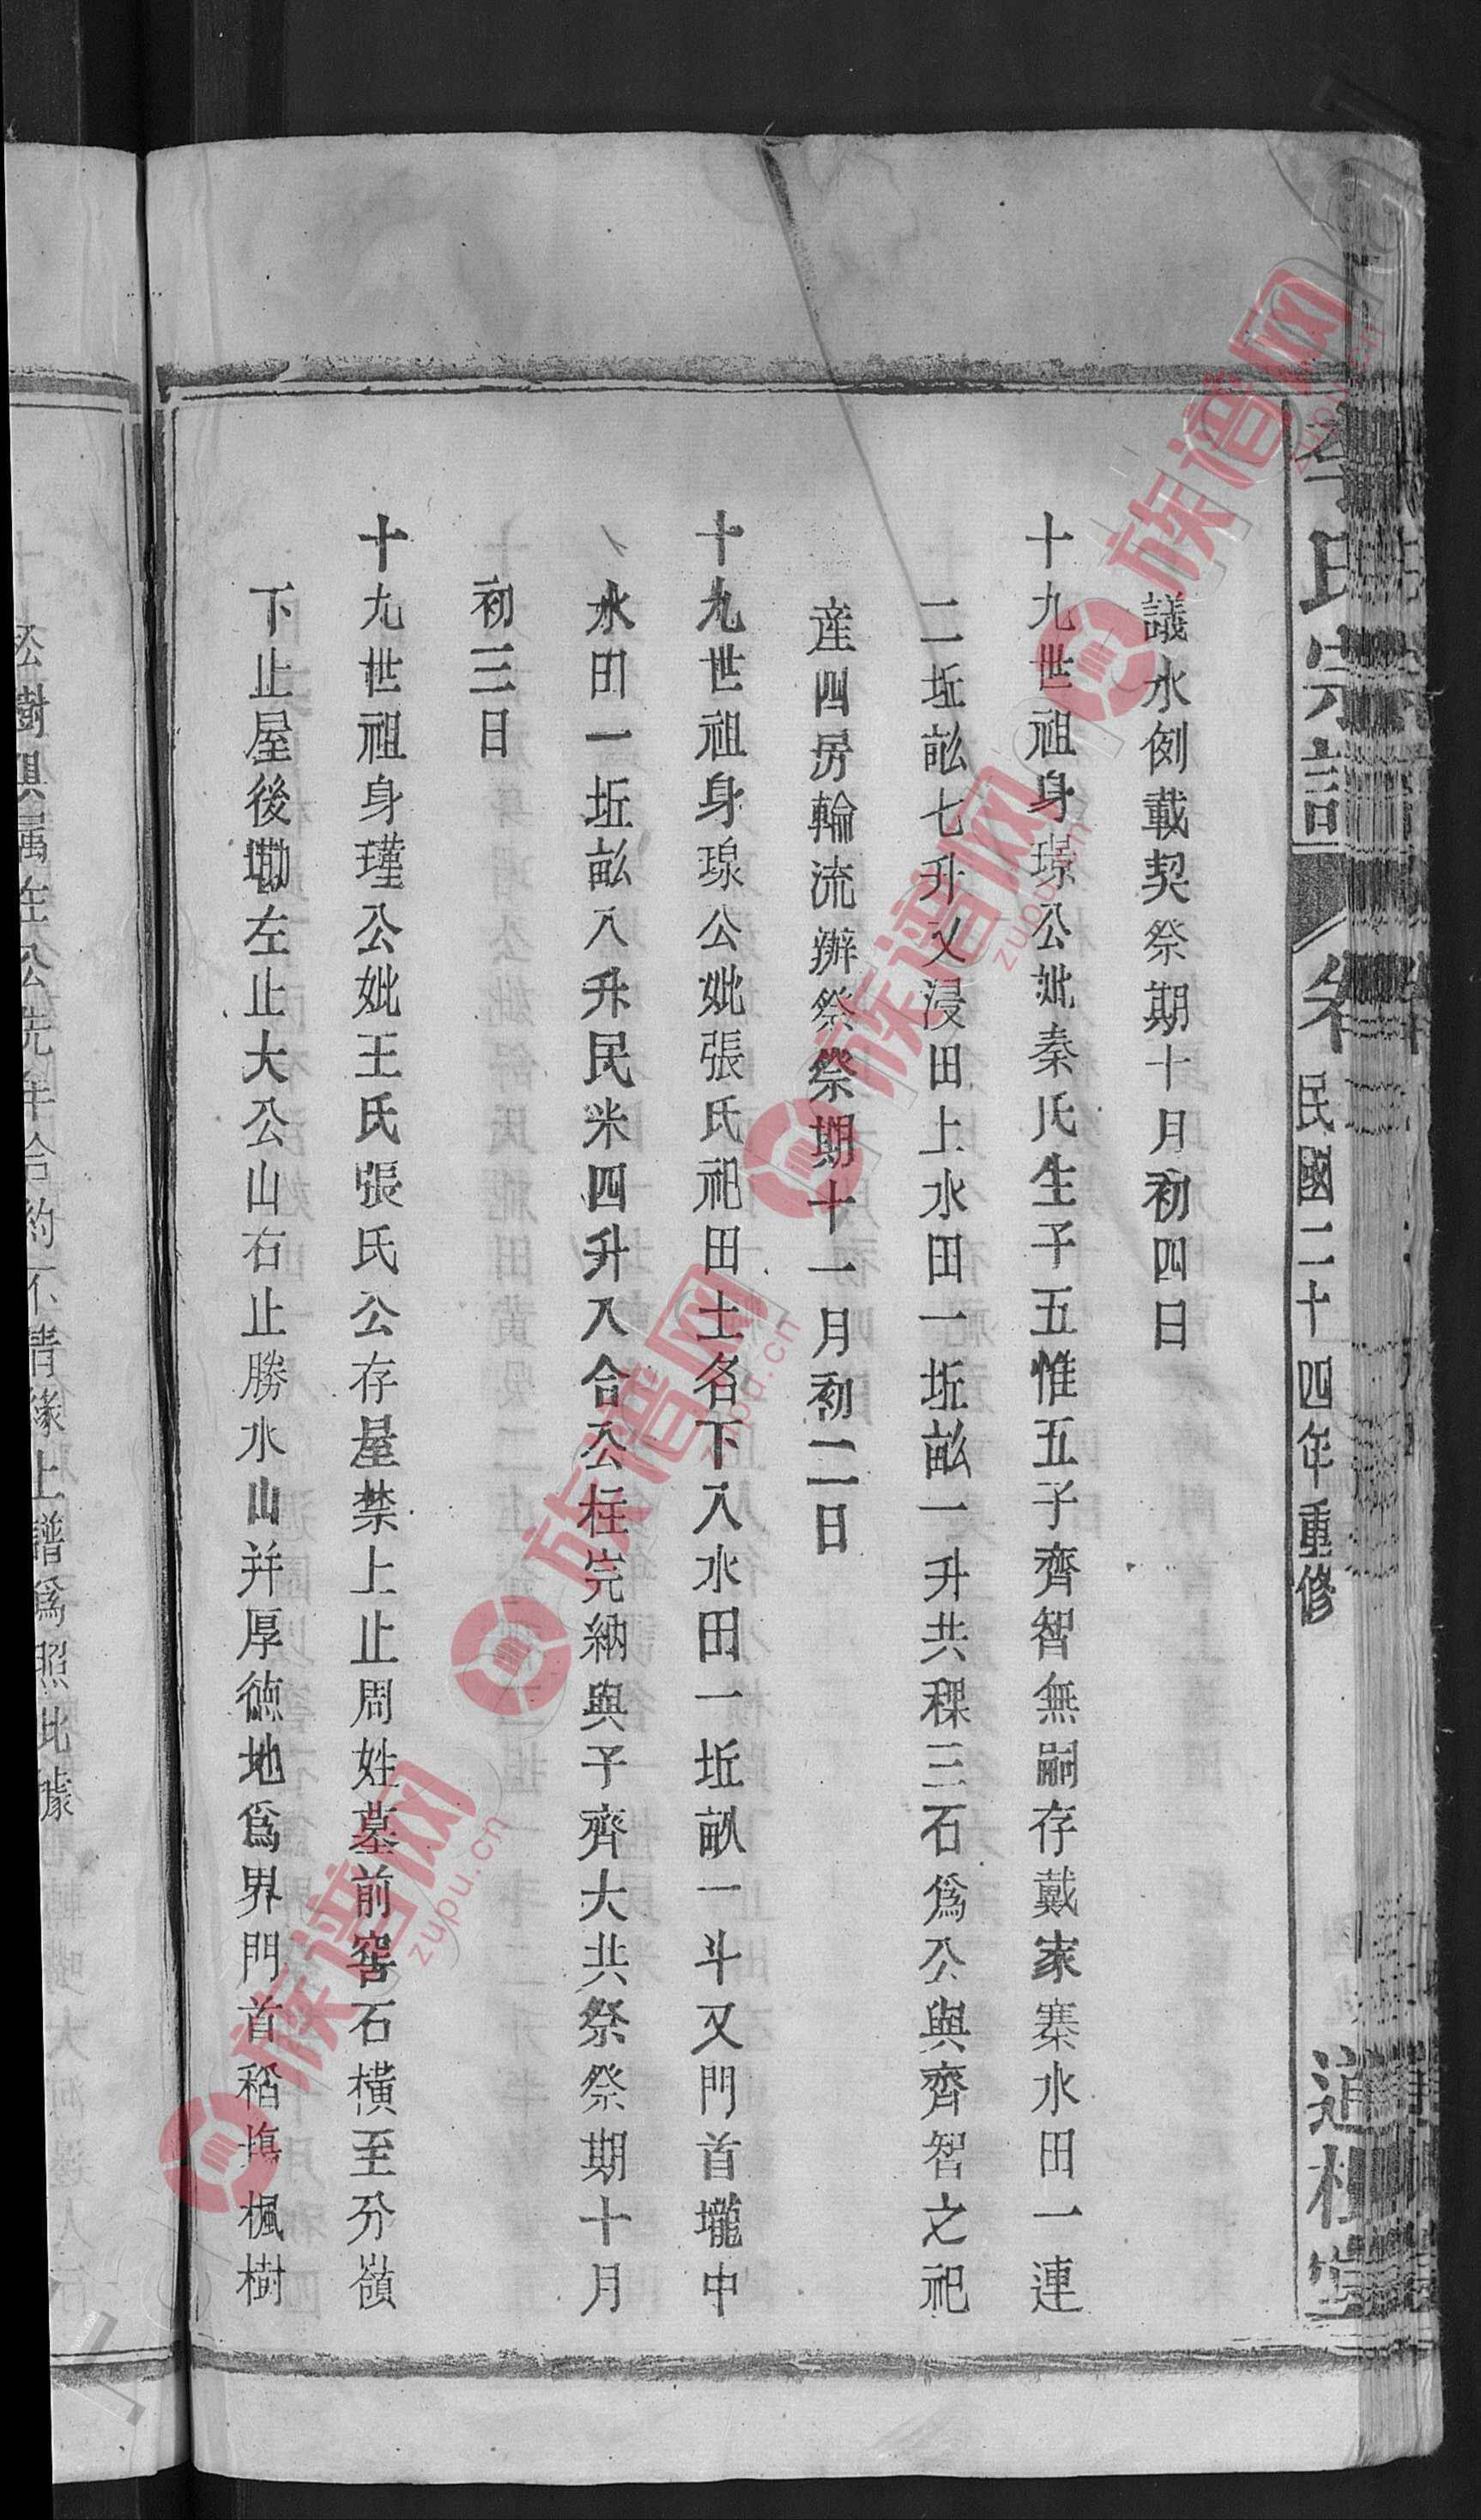 李氏宗譜 民國二十四年重修 道
議水例載契祭期十月初四日
十九世祖身璟公妣秦氏生子五惟五子齊智無嗣存戴家寨水田一連
二坵畝七升又浸田上水田一坵畝一升共稞三石為公與齊智之祀
産四房輪流辦祭祭期十一月初二日
十九世祖身瑔公妣張氏祀田土名下入水田一坵畝一斗又門首壠中
水田一坵畝入升民米四升入合公柱完納與子齊大共祭祭期十月
初三日
十九世祖身瑾公妣王氏張氏公存屋禁上止周姓墓前窖石橫至分嶺
下止屋後墈左止大公山右止勝水山并厚徳地爲界門首稻塲楓樹
松樹俱屬在公先年合約不清緣上譜爲照此據